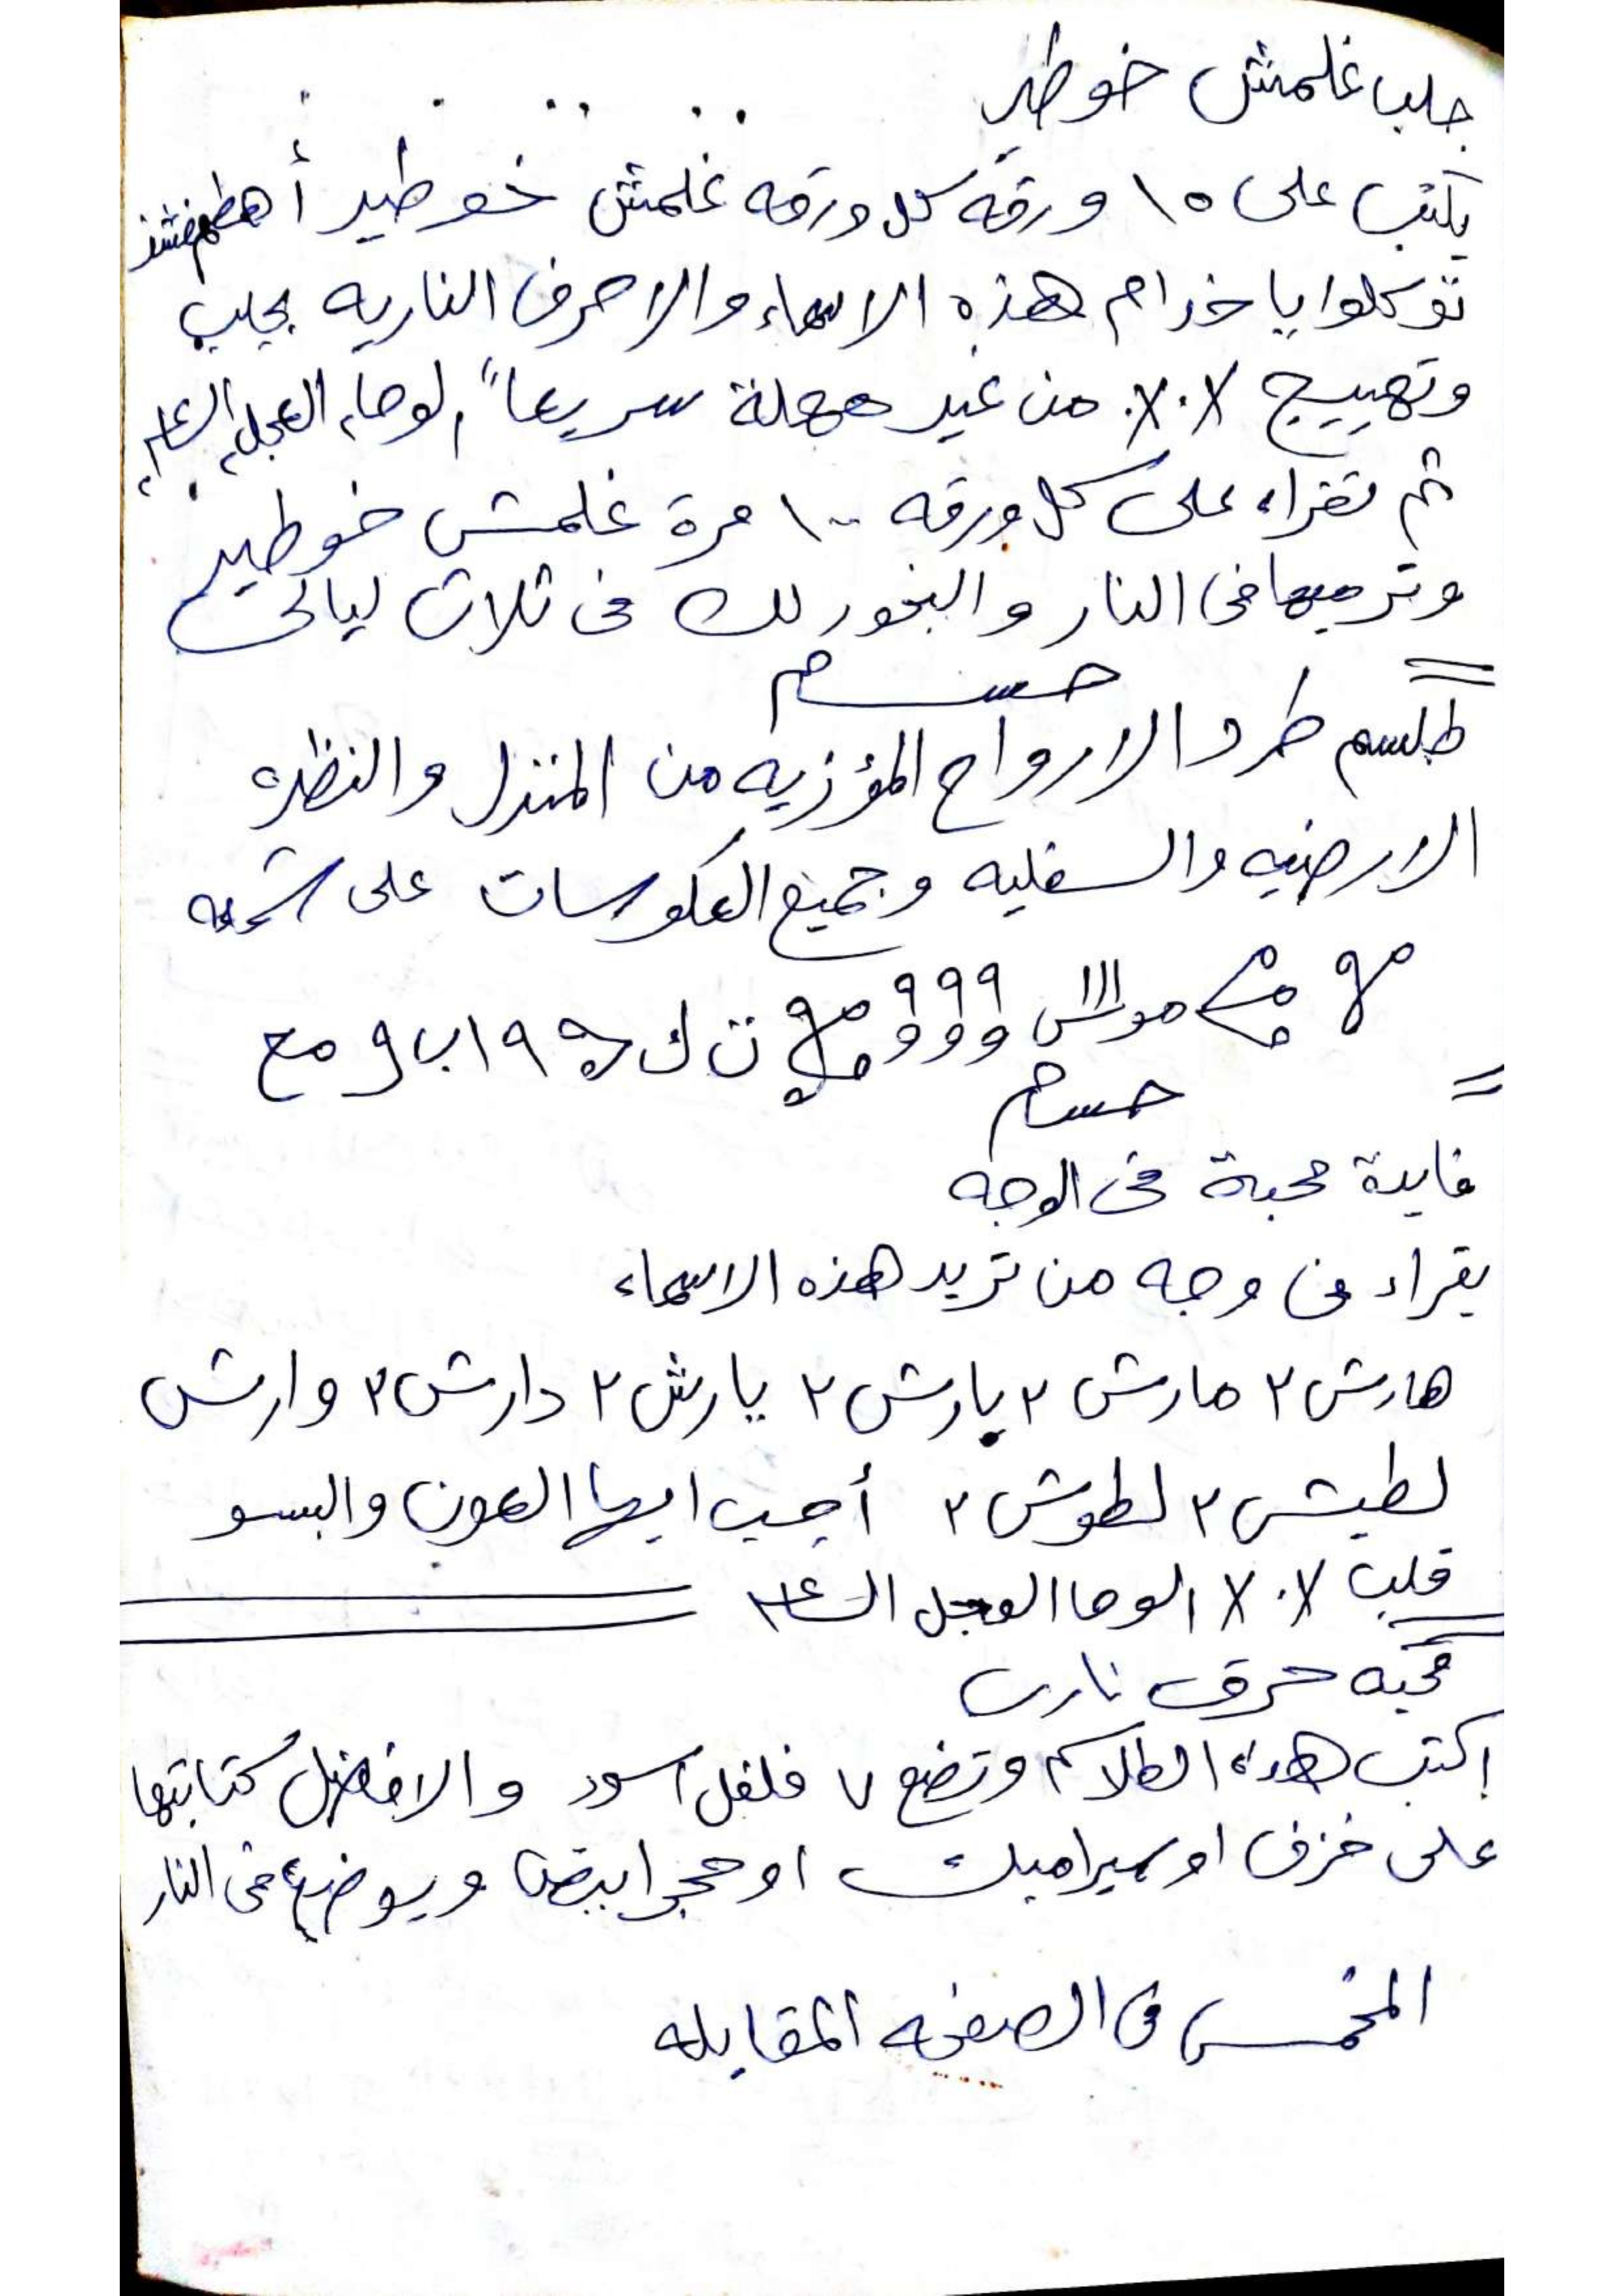 جلب غلمش خوطير
يكتب على ١٥ ورقه كل ورقه غلمش خوطير أهطمفشذ
توكلوا يا خدام هذه الاسماء والاحرف الناريه بجلب
وتهييج ٧.٧. من غير مهلة سريعاً الوحا العجل الساعه
ثم تقراء على كل ورقه ١٠٠ مرة غلمش خوطير
وترميها في النار والبخور لك في ثلاث ليالي
حسام
طلسم طرد الارواح المؤذيه من المنزل والنظره
الارضيه والسفليه وجميع العكوسات على شمعه
ااا ٩٩٩
ن ك ١٩ اب و مع
حسام
فايدة محبة في الوجه
يقراء في وجه من تريد هذه الاسماء
هارش ٢ مارش ٢ يارش ٢ يارش ٢ دارش ٢ وارش
لطيش ٢ لطوش ٢ أجيب ايها العون والبسو
قلب ٧.٧ الوحا العجل الساعه
محبه حرق ناري
اكتب هذه الطلاسم وتضع ٧ فلفل اسود والافضل كتابتها
على خزف او سيراميك او حجر ابيض ويوضع في النار
المخمس في الصفحه المقابله